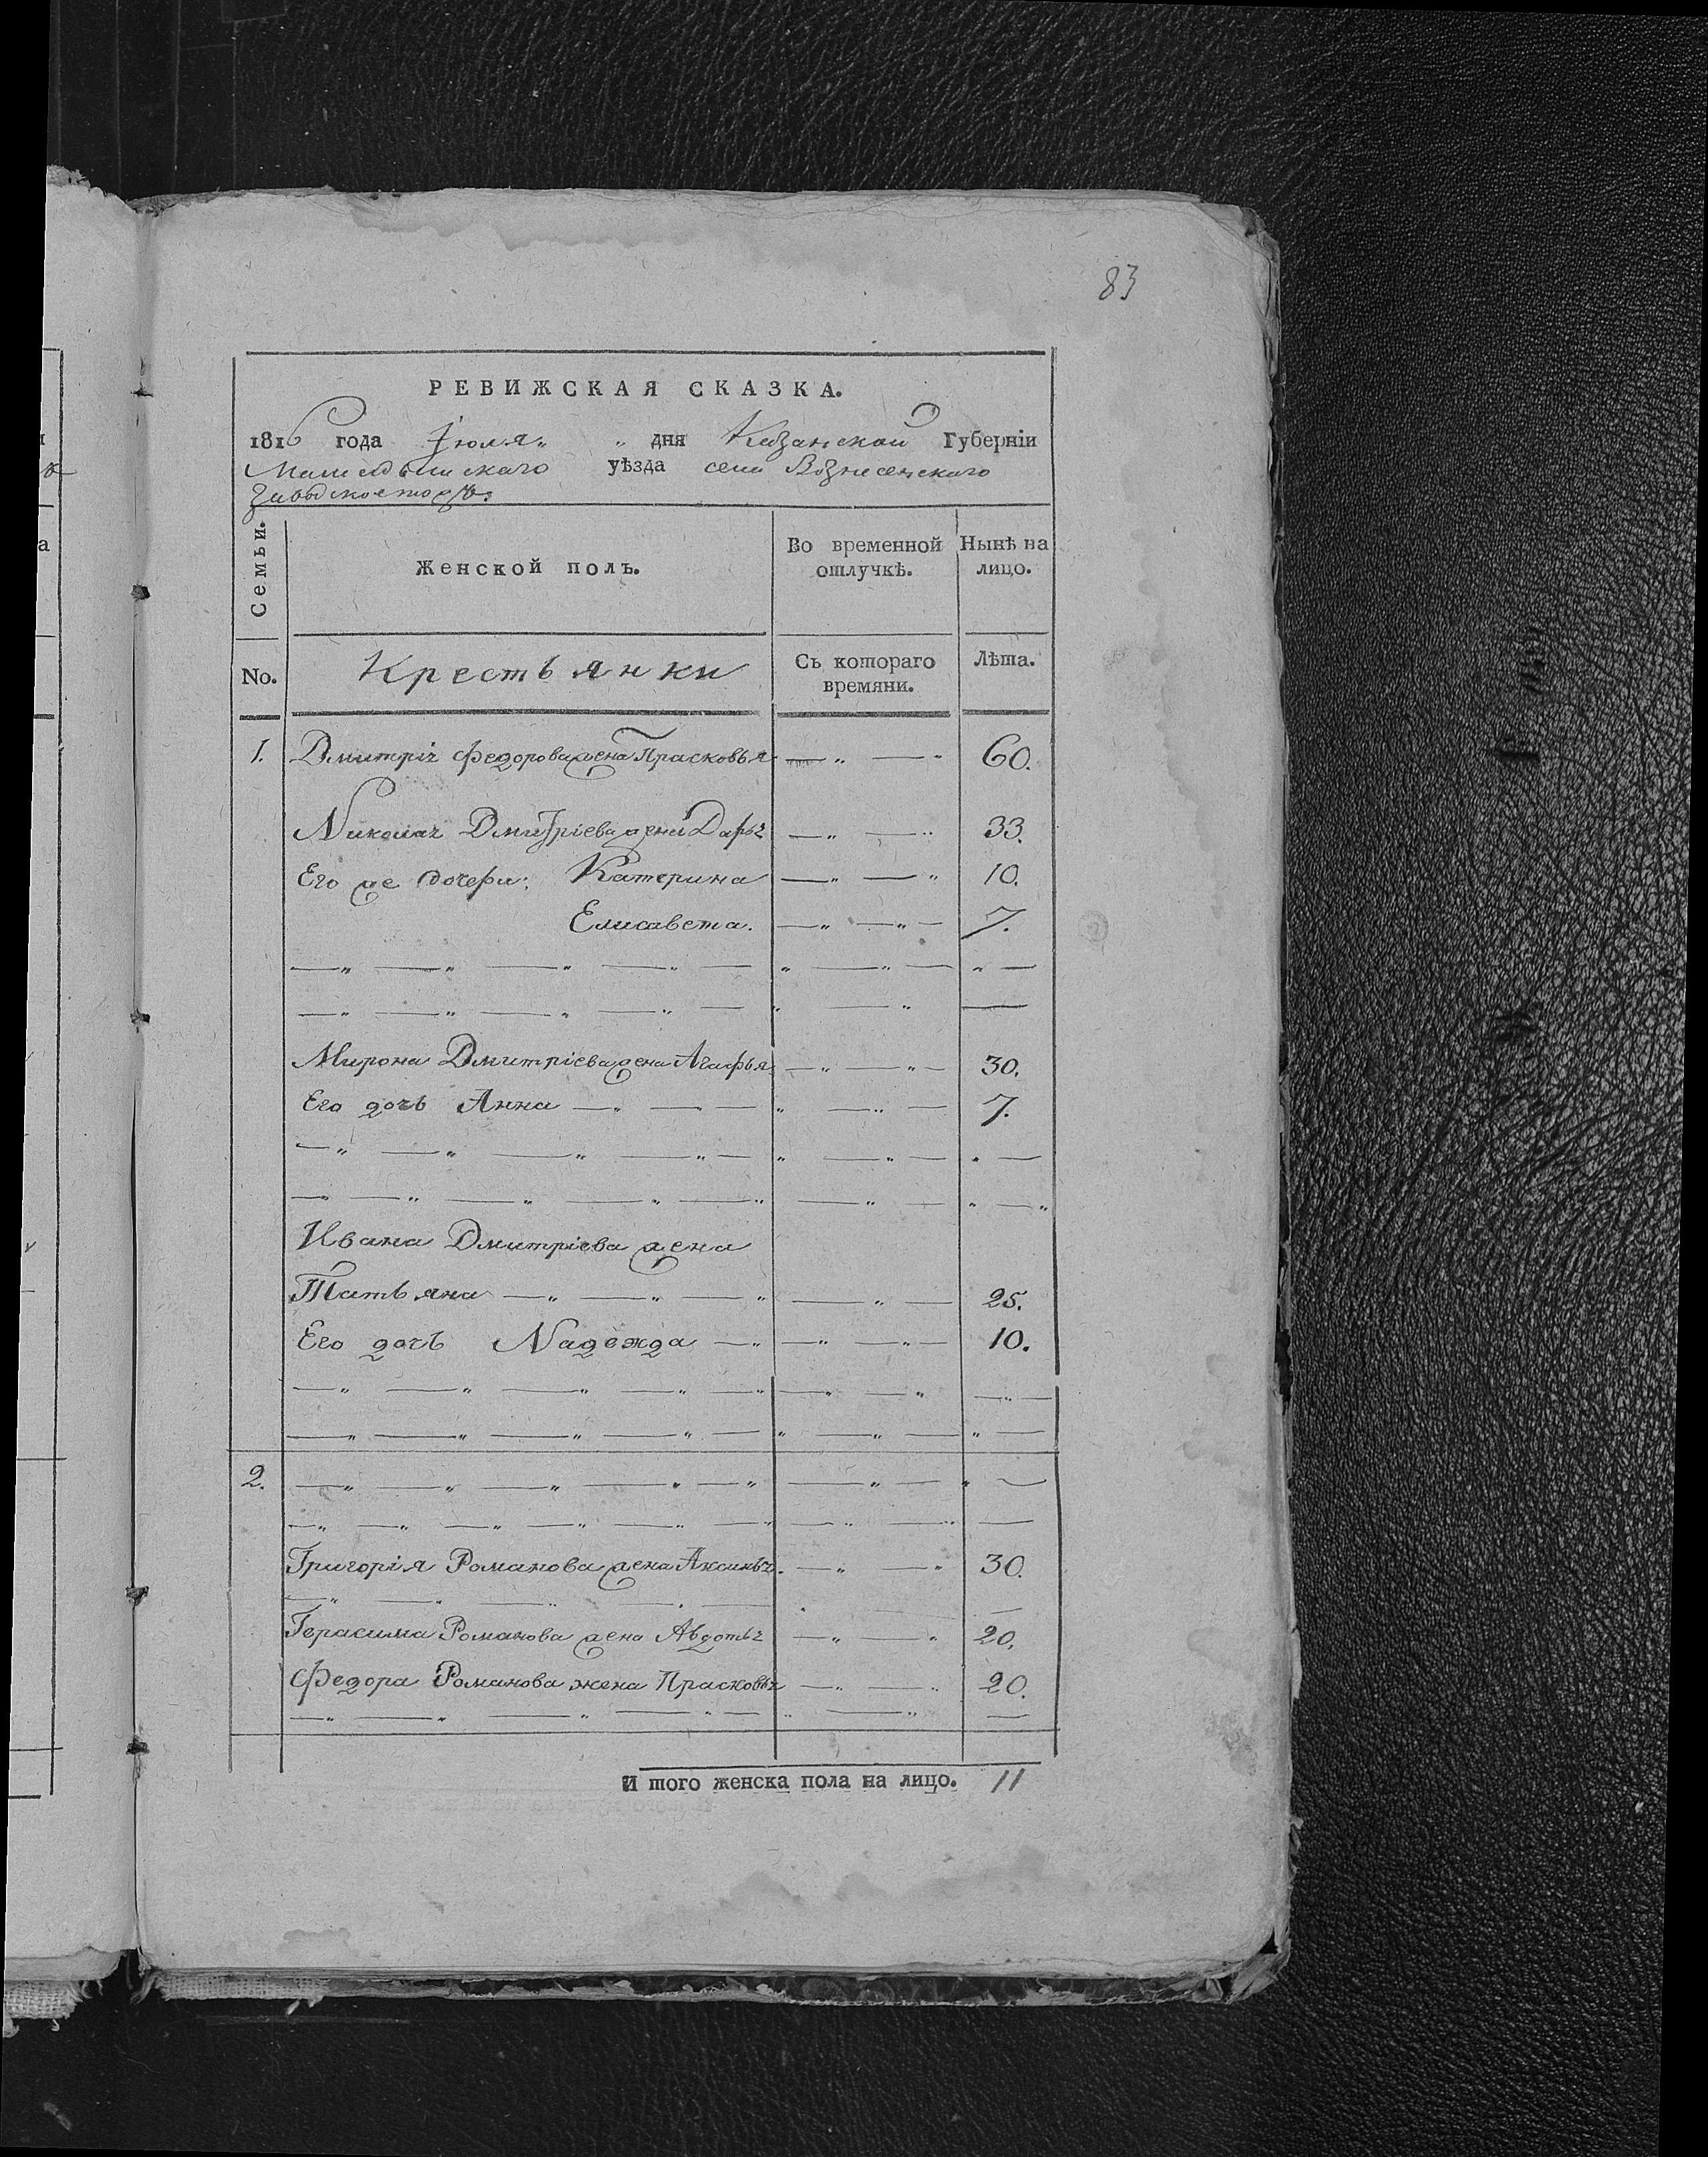 83
РЕВИЖСКАЯ СКАЗКА.
1816 года Іюля „ „ дня Казанской Губерніи
Мамадышскаго уѣзда села Вознесенскаго
Семьи.
Женской полъ.
Во временной отлучкѣ.
Нынѣ на лицо.
No.
Крестьянки
Съ котораго времяни.
Лѣта.
1. Дмитрія Федорова жена Прасковья — „ — „ 60.
Николая Дмитріева жена Дарья — „ — „ 33.
Его же дочери: Катерина — „ — „ 10.
Елисавета. — „ — „ — 7.
Мирона Дмитріева жена Агафья — „ — „ — 30.
Его дочь Анна — „ — — „ — „ — 7.
Ивана Дмитріева жена
Татьяна — „ — „ — „ — „ — 25.
Его дочь Надежда — „ — „ — „ — 10.
2.
Григорія Романова жена Аксинья. — „ — „ 30.
Герасима Романова жена Авдотья — „ — „ 20.
Федора Романова жена Прасковья — „ — „ 20.
И того женска пола на лицо. 11